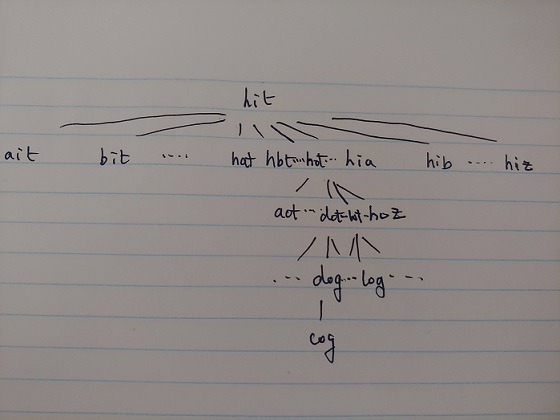 hit
ait bit .... hat hbt...hot... hia hib .... hiz
aot ... dot-lot-hoz
.... dog...log ....
cog